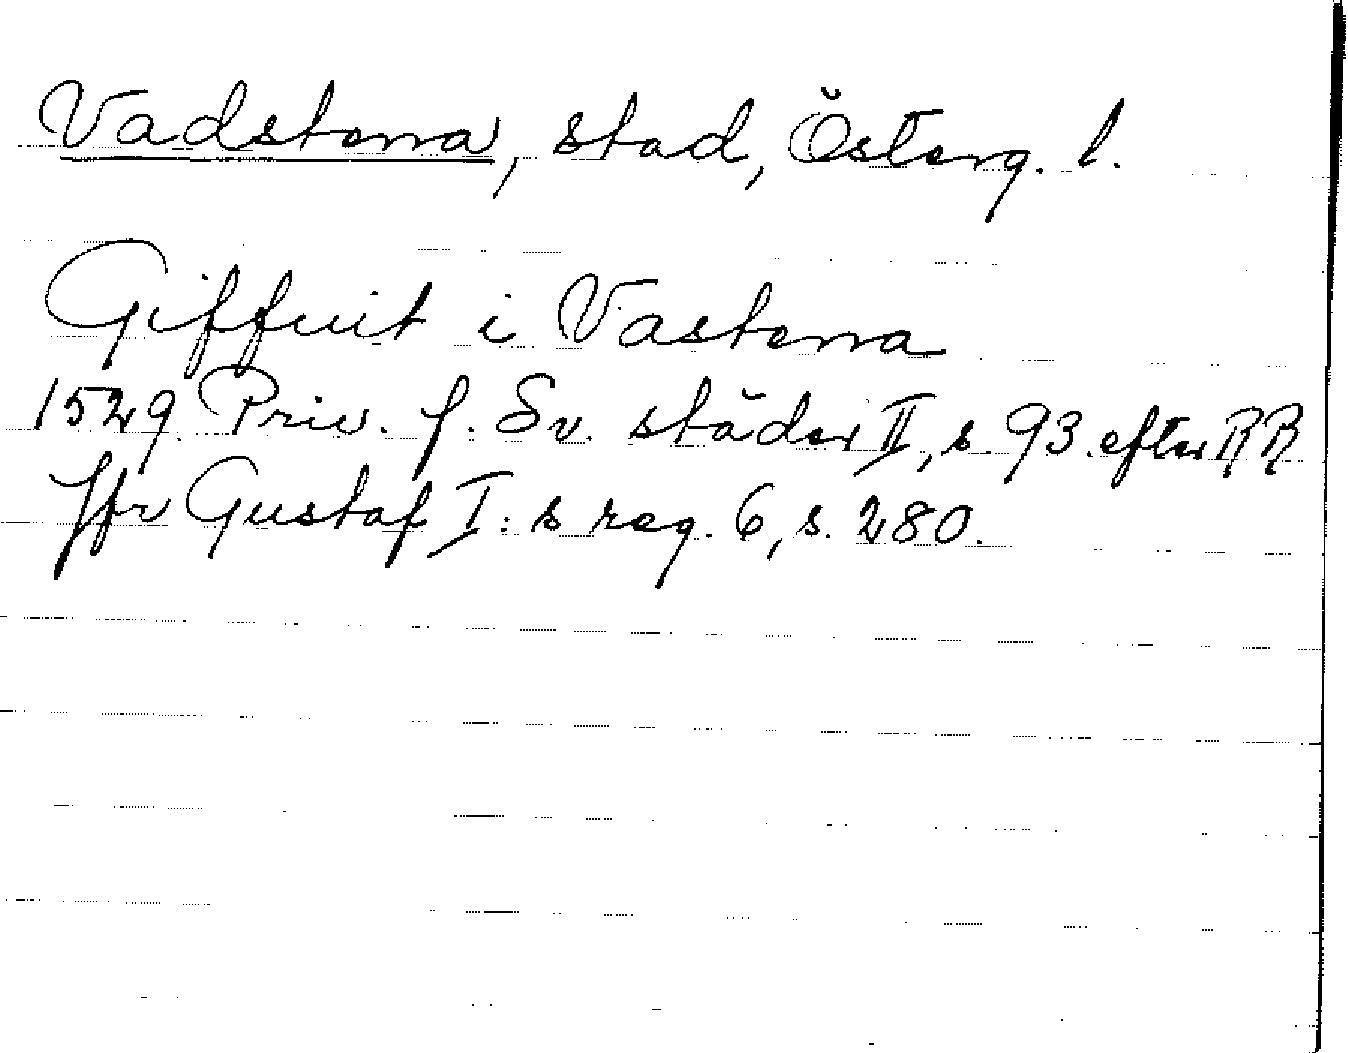 Vadstena, stad, Österg. l.
Giffuit i Vastena
1529 Priv. f. Sv. städer II, s. 93 efter RR
Jfr Gustaf I: s reg. 6, s. 280.